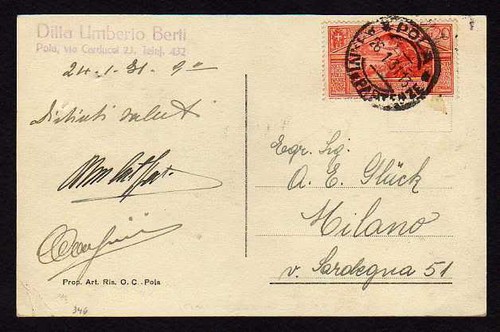 Ditta Umberto Berti
Pola, via Carducci 23. Telef. 432
24-1-31. 9°°
Distinti saluti
Prop. Art. Ris. O. C. - Pola
346
POLA
PARTENZE
Egr. Sig.
A. E. Glück
Milano
v. Sardegna 51